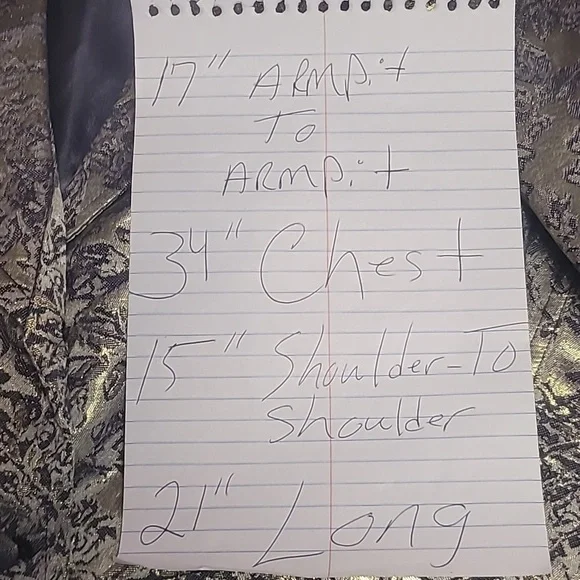 17" ARMPit
To
ARMPit
34" Chest
15" Shoulder-To
Shoulder
21" Long